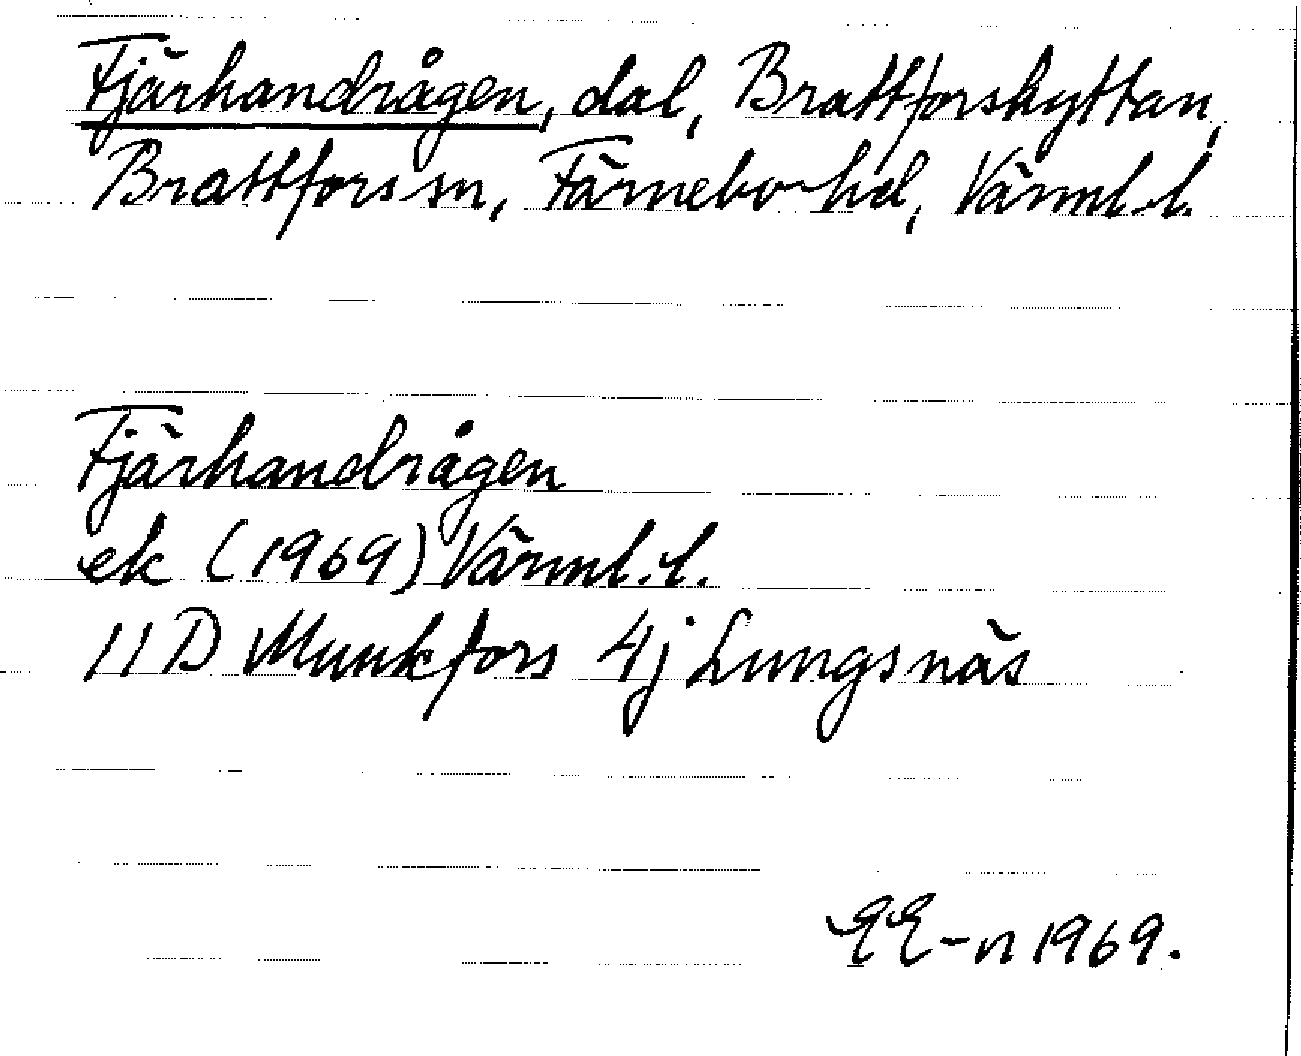 Fjärhandrågen, dal, Brattforshyttan,
Brattfors sn, Färnebo hd, Värml. l.
Fjärhandrågen
ek (1969) Värml. l.
11 D Munkfors 4j Lungsnäs
EE-n 1969.